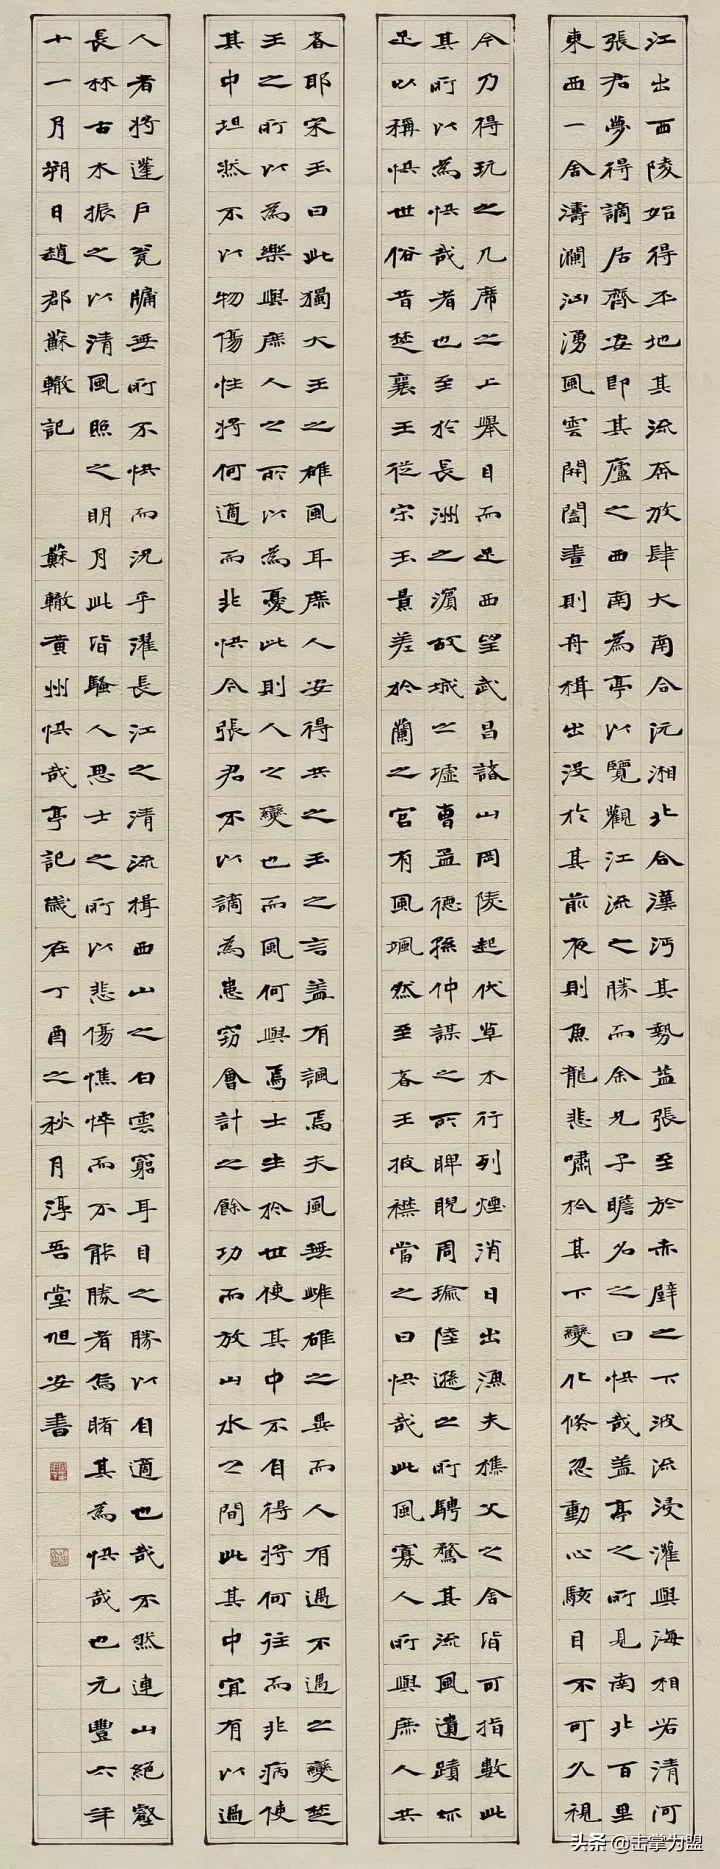 江出西陵始得平地其流奔放肆大南合沅湘北合漢沔其勢益張至於赤壁之下波流浸灌與海相若清河
張君夢得謫居齊安即其廬之西南為亭以覽觀江流之勝而余兄子瞻名之曰快哉蓋亭之所見南北百里
東西一舍濤瀾洶湧風雲開闔晝則舟楫出沒於其前夜則魚龍悲嘯於其下變化倐忽動心駭目不可久視
今乃得玩之几席之上舉目而足西望武昌諸山岡陵起伏草木行列煙消日出漁夫樵父之舍皆可指數此
其所以為快哉者也至於長洲之濵故城之墟曹孟德孫仲謀之所睥睨周瑜陸遜之所騁騖其流風遺蹟亦
足以稱快世俗昔楚襄王從宋玉景差於蘭之宮有風颯然至者王披襟當之曰快哉此風寡人所與庶人共
者耶宋玉曰此獨大王之雄風耳庶人安得共之玉之言蓋有諷焉夫風無雌雄之異而人有遇不遇之變楚
王之所以為樂與庶人之所以為憂此則人之變也而風何與焉士生於世使其中不自得將何往而非病使
其中坦然不以物傷性將何適而非快今張君不以謫為患竊會計之餘功而放山水之間此其中宜有以過
人者將蓬戶瓮牖無所不快而況乎濯長江之清流揖西山之白雲窮耳目之勝以自適也哉不然連山絕壑
長林古木振之以清風照之明月此皆騷人思士之所以悲傷憔悴而不能勝者烏睹其為快哉也元豐六年
十一月朔日趙郡蘇轍記 蘇轍黃州快哉亭記歲在丁酉之秋月淳吾堂旭安書
头条 @击掌为盟